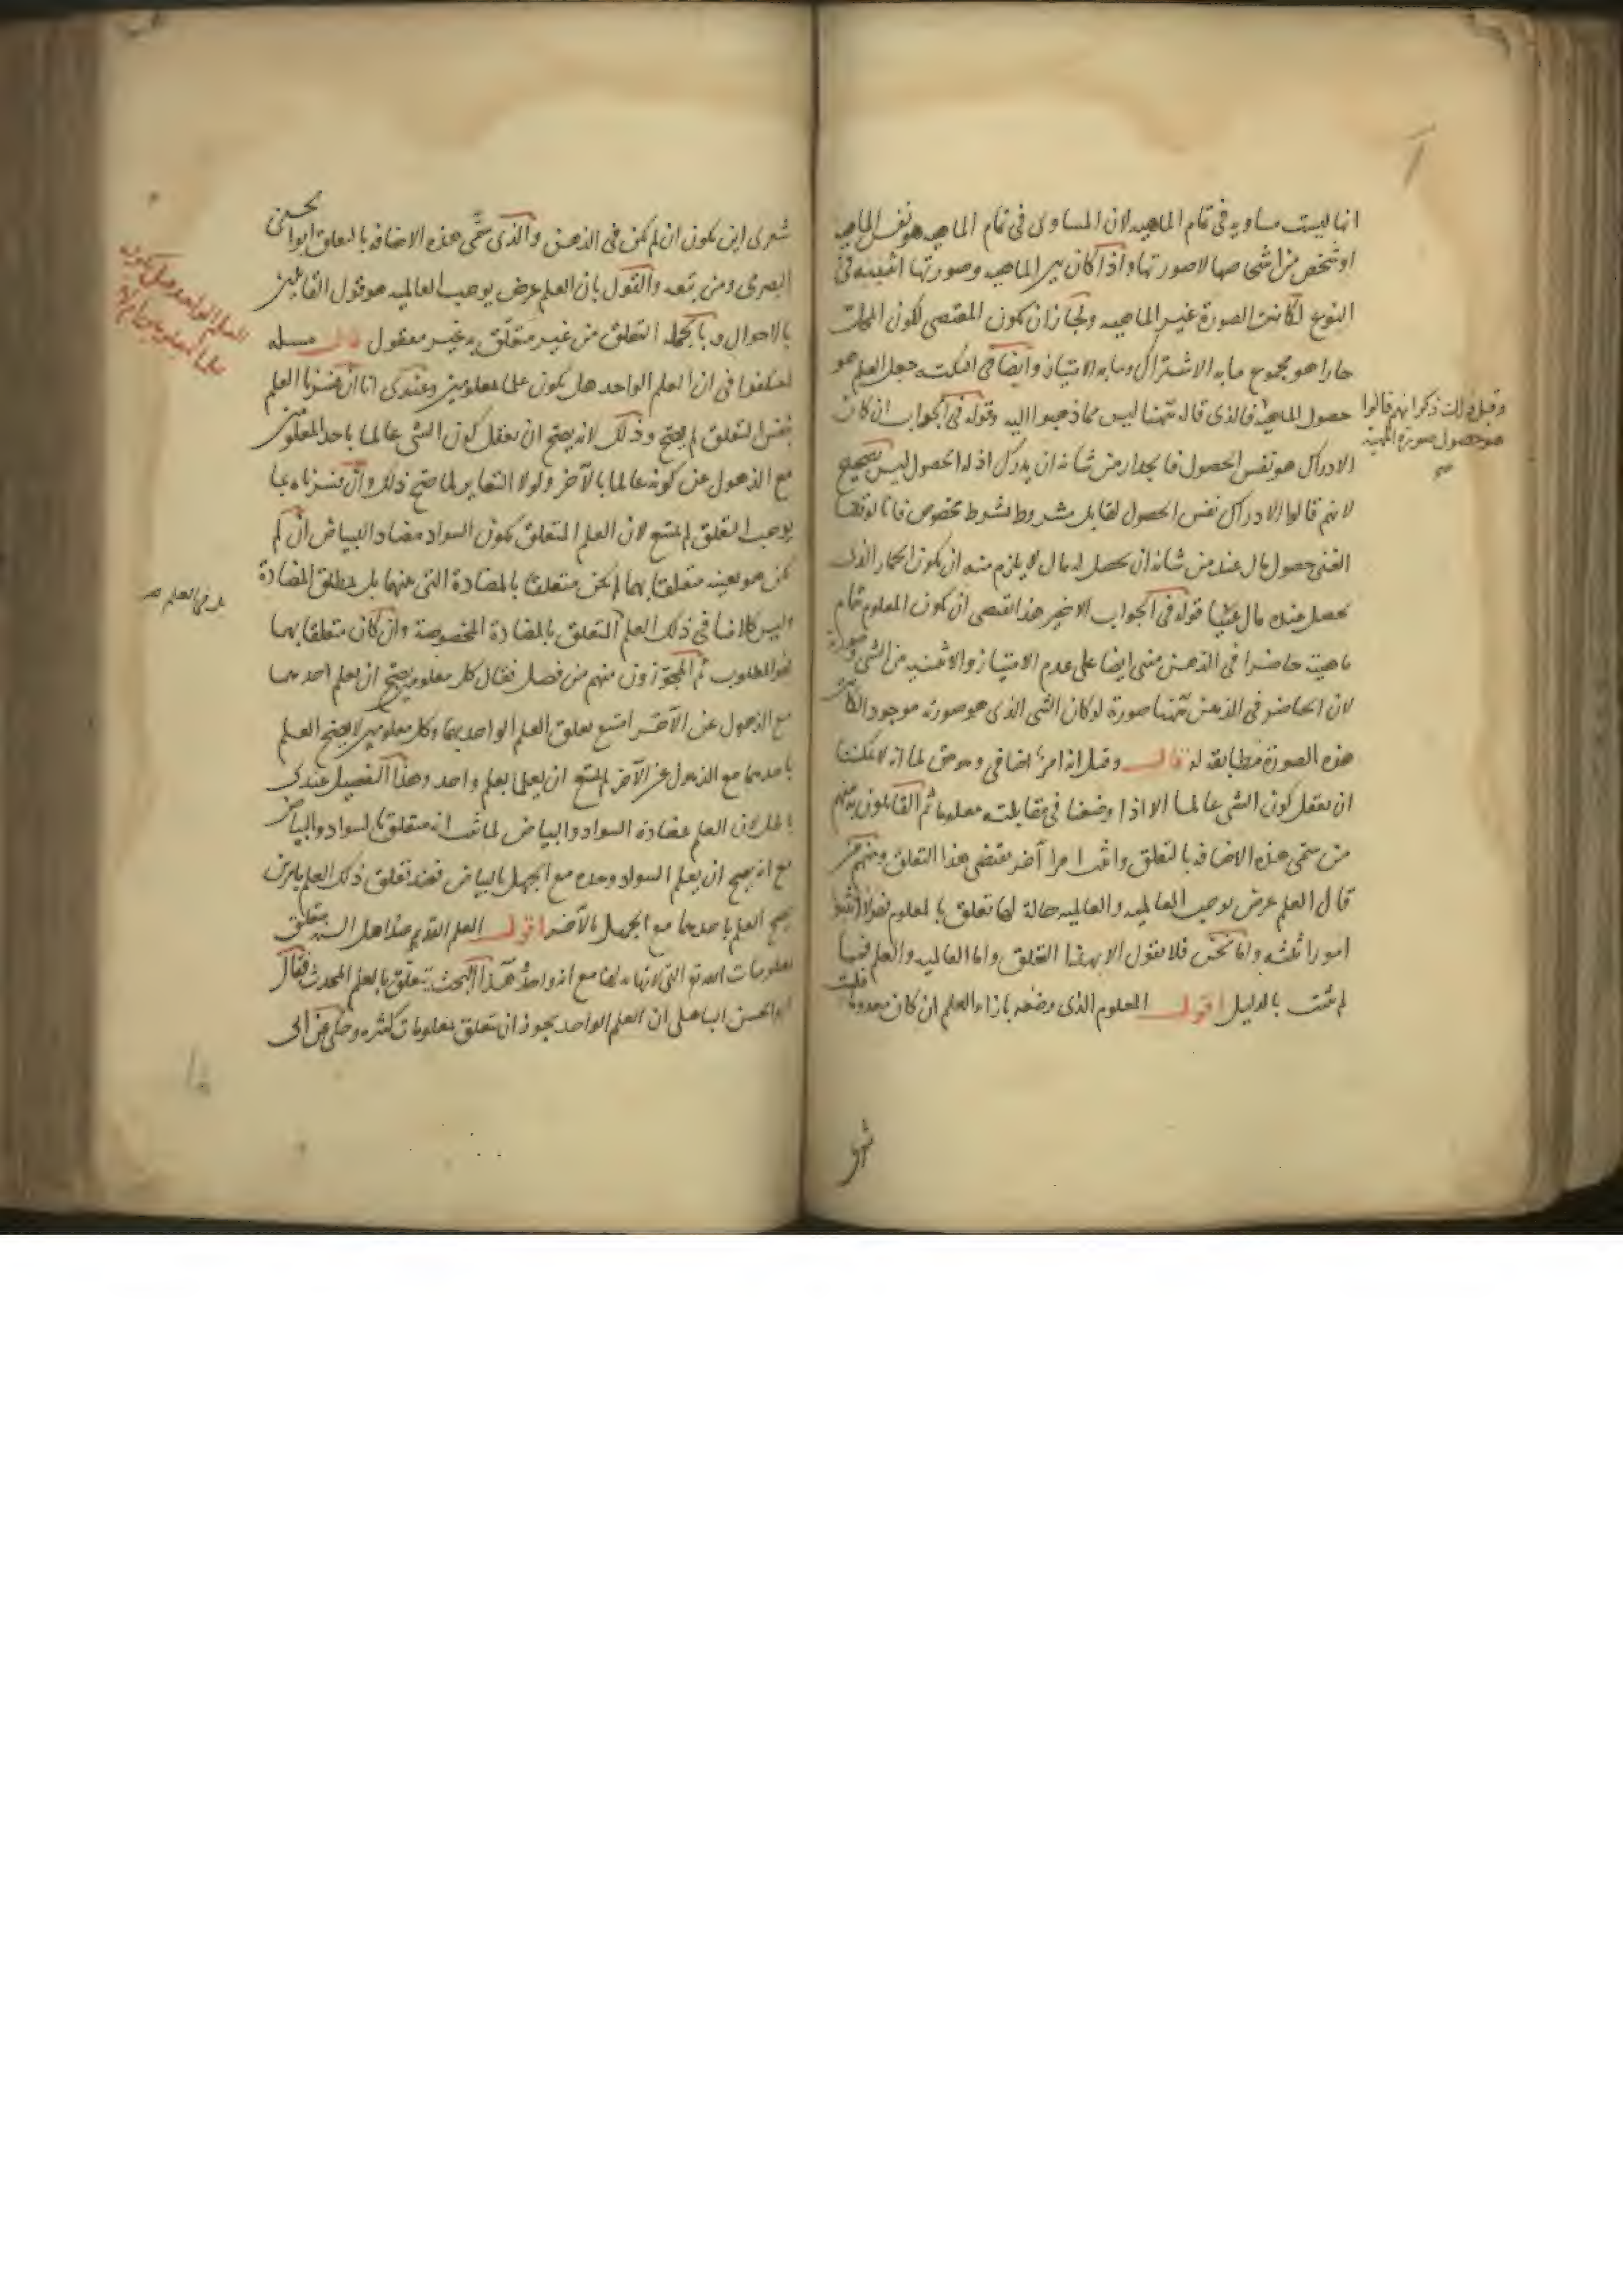 انها ليست مساويه فى تمام الماهيه لان المساوى فى تمام الماهيه هو نفس الماهيه
او شخص من اشخاصها لا صورتها واذا كان بين الماهيه وصورتها اثنينيه فى
النوع لكانت الصورة غير الماهيه ولجاز ان يكون المقتضى لكون المحل
حارا هو مجموع ما به الاشتراك وما به الامتياز وايضا جعل العلم هو
حصول الماهية فالذى قاله ههنا ليس مما ذهبوا اليه وقوله فى الجواب ان كان
وقبل ذلك ذكر انهم قالوا
هو حصول صورة المهية
صح
الادراك هو نفس الحصول فالجدار من شانه ان يدرك اذ له الحصول ليس بصحيح
لانهم قالوا الادراك نفس الحصول لقابل مشروط بشرط مخصوص فانا لو قلنا
الغنى حصول مال عند من شانه ان يحصل له مال لا يلزم منه ان يكون الحمار الذى
يحصل عنده مال غنيا قوله فى الجواب الاخير هذا يقتضى ان يكون المعلوم تمام
ماهيته حاضرا فى الذهن مبنى ايضا على عدم الامتياز والاثنينيه من الشى وصورته
لان الحاضر فى الذهن ههنا صورة لو كان الشى الذى هو صورته موجودا لكانت
هذه الصورة مطابقه له قال وقيل انه امر اضافى وهو حق لما انه لا يمكننا
ان نعقل كون الشى عالما الا اذا وضعنا فى مقابلته معلوما ثم القايلون به منهم
من سمى هذه الاضافه بالتعلق واثبت امرا آخر يقتضى هذا التعلق ومنهم من
قال العلم عرض يوجب العالميه والعالميه حالة لها تعلق بالمعلوم فهولاء اثبتوا
امورا ثلثه واما نحن فلا نقول الا بهذا التعلق واما العالميه والعلم فهما
لم يثبت بالدليل اقول المعلوم الذى وضعه بازاء العلم ان كان معدوما فليت
شعرى
شعرى اين يكون ان لم يكن فى الذهن والذى سمى هذه الاضافه بالتعلق ابو الحسين
البصرى ومن تبعه والقول بان العلم عرض يوجب العالميه هو قول القايلين
بالاحوال وبالجمله التعلق من غير متعلق به غير معقول قال مسله
العلم الواحد هل يكون
علما بمعلومين ام لا
اختلفوا فى ان العلم الواحد هل يكون علما بمعلومين وعندى انا ان فسرنا العلم
بنفس التعلق لم يصح وذلك لانه يصح ان نعقل كون الشى عالما باحد المعلومين
مع الذهول عن كونه عالما بالآخر ولولا التغاير لما صح ذلك وان فسرناه بما
يوجب التعلق لم يمتنع لان العلم المتعلق بكون السواد مضادا للبياض ان لم
يكن هو بعينه متعلقا بهما لم يكن متعلقا بالمضادة التى بينهما بل بمطلق المضادة
وليس كلامنا فى ذلك العلم المتعلق بالمضادة المخصوصة وان كان متعلقا بهما
فهو المطلوب ثم المجوزون منهم من فصل فقال كل معلومين يصح ان يعلم احدهما
مع الذهول عن الآخر امتنع تعلق العلم الواحد بهما وكل معلومين لا يصح العلم
باحدهما مع الذهول عن الآخر لم يمتنع ان يعلما بعلم واحد وهذا التفصيل عندى
باطل لان العلم بمضادة السواد والبياض لما ثبت انه متعلق بالسواد والبياض
مع انه يصح ان يعلم السواد وحده مع الجهل بالبياض فعند تعلق ذلك العلم بامرين
يصح العلم باحدهما مع الجهل بالآخر اقول العلم القديم عند اهل السنه يتعلق
بمعلومات الله تع التى لا نهايه لها مع انه واحد وهذا البحث يتعلق بالعلم المحدث فقال
ابو الحسن الباهلى ان العلم الواحد يجوز ان يتعلق بمعلومات كثيره وحكى عن ابى